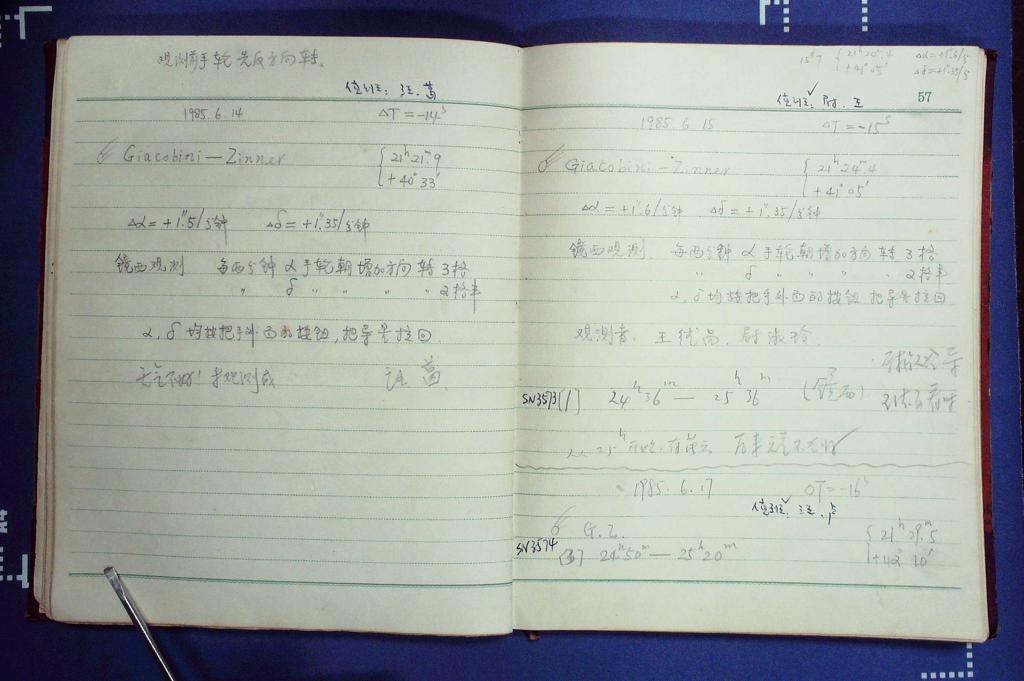 观测前手轮先反方向转.
值班: 汪. 葛
1985. 6. 14 ΔT = -14ˢ
Giacobini — Zinner { 21ʰ 21ᵐ.9
+40° 33′
Δα = +1″.5/分钟 Δδ = +1″.35/分钟
镜西观测 每两分钟 α 手轮朝增加方向转 3格
〃 δ 〃 〃 〃 2格半
α, δ 均按把手外面的按钮, 把导星拉回
天气不好! 未观测成 汪 葛
15ᵈ.7 { 21ʰ 24ᵐ.4 Δα = +1″.6/分
+41° 05′ Δδ = +1″.35/分
值班: 尉. 王 57
1985. 6. 15 ΔT = -15ˢ
Giacobini — Zinner { 21ʰ 24ᵐ.4
+41° 05′
Δα = +1″.6/分钟 Δδ = +1″.35/分钟
镜西观测 每两分钟 α 手轮朝增加方向转 3格
〃 δ 〃 〃 〃 2格半
α, δ 均按把手外面的按钮, 把导星拉回
观测者: 王 尉淑玲.
SN3573 [1] 24ʰ 36ᵐ — 25ʰ 36ᵐ (镜西)
25ʰ 后来天气不太好
1985. 6. 17 ΔT = -16ˢ
值班: 汪. 卢
G. Z. { 21ʰ 29ᵐ.5
+42° 10′
SN3574 24ʰ 50ᵐ — 25ʰ 20ᵐ